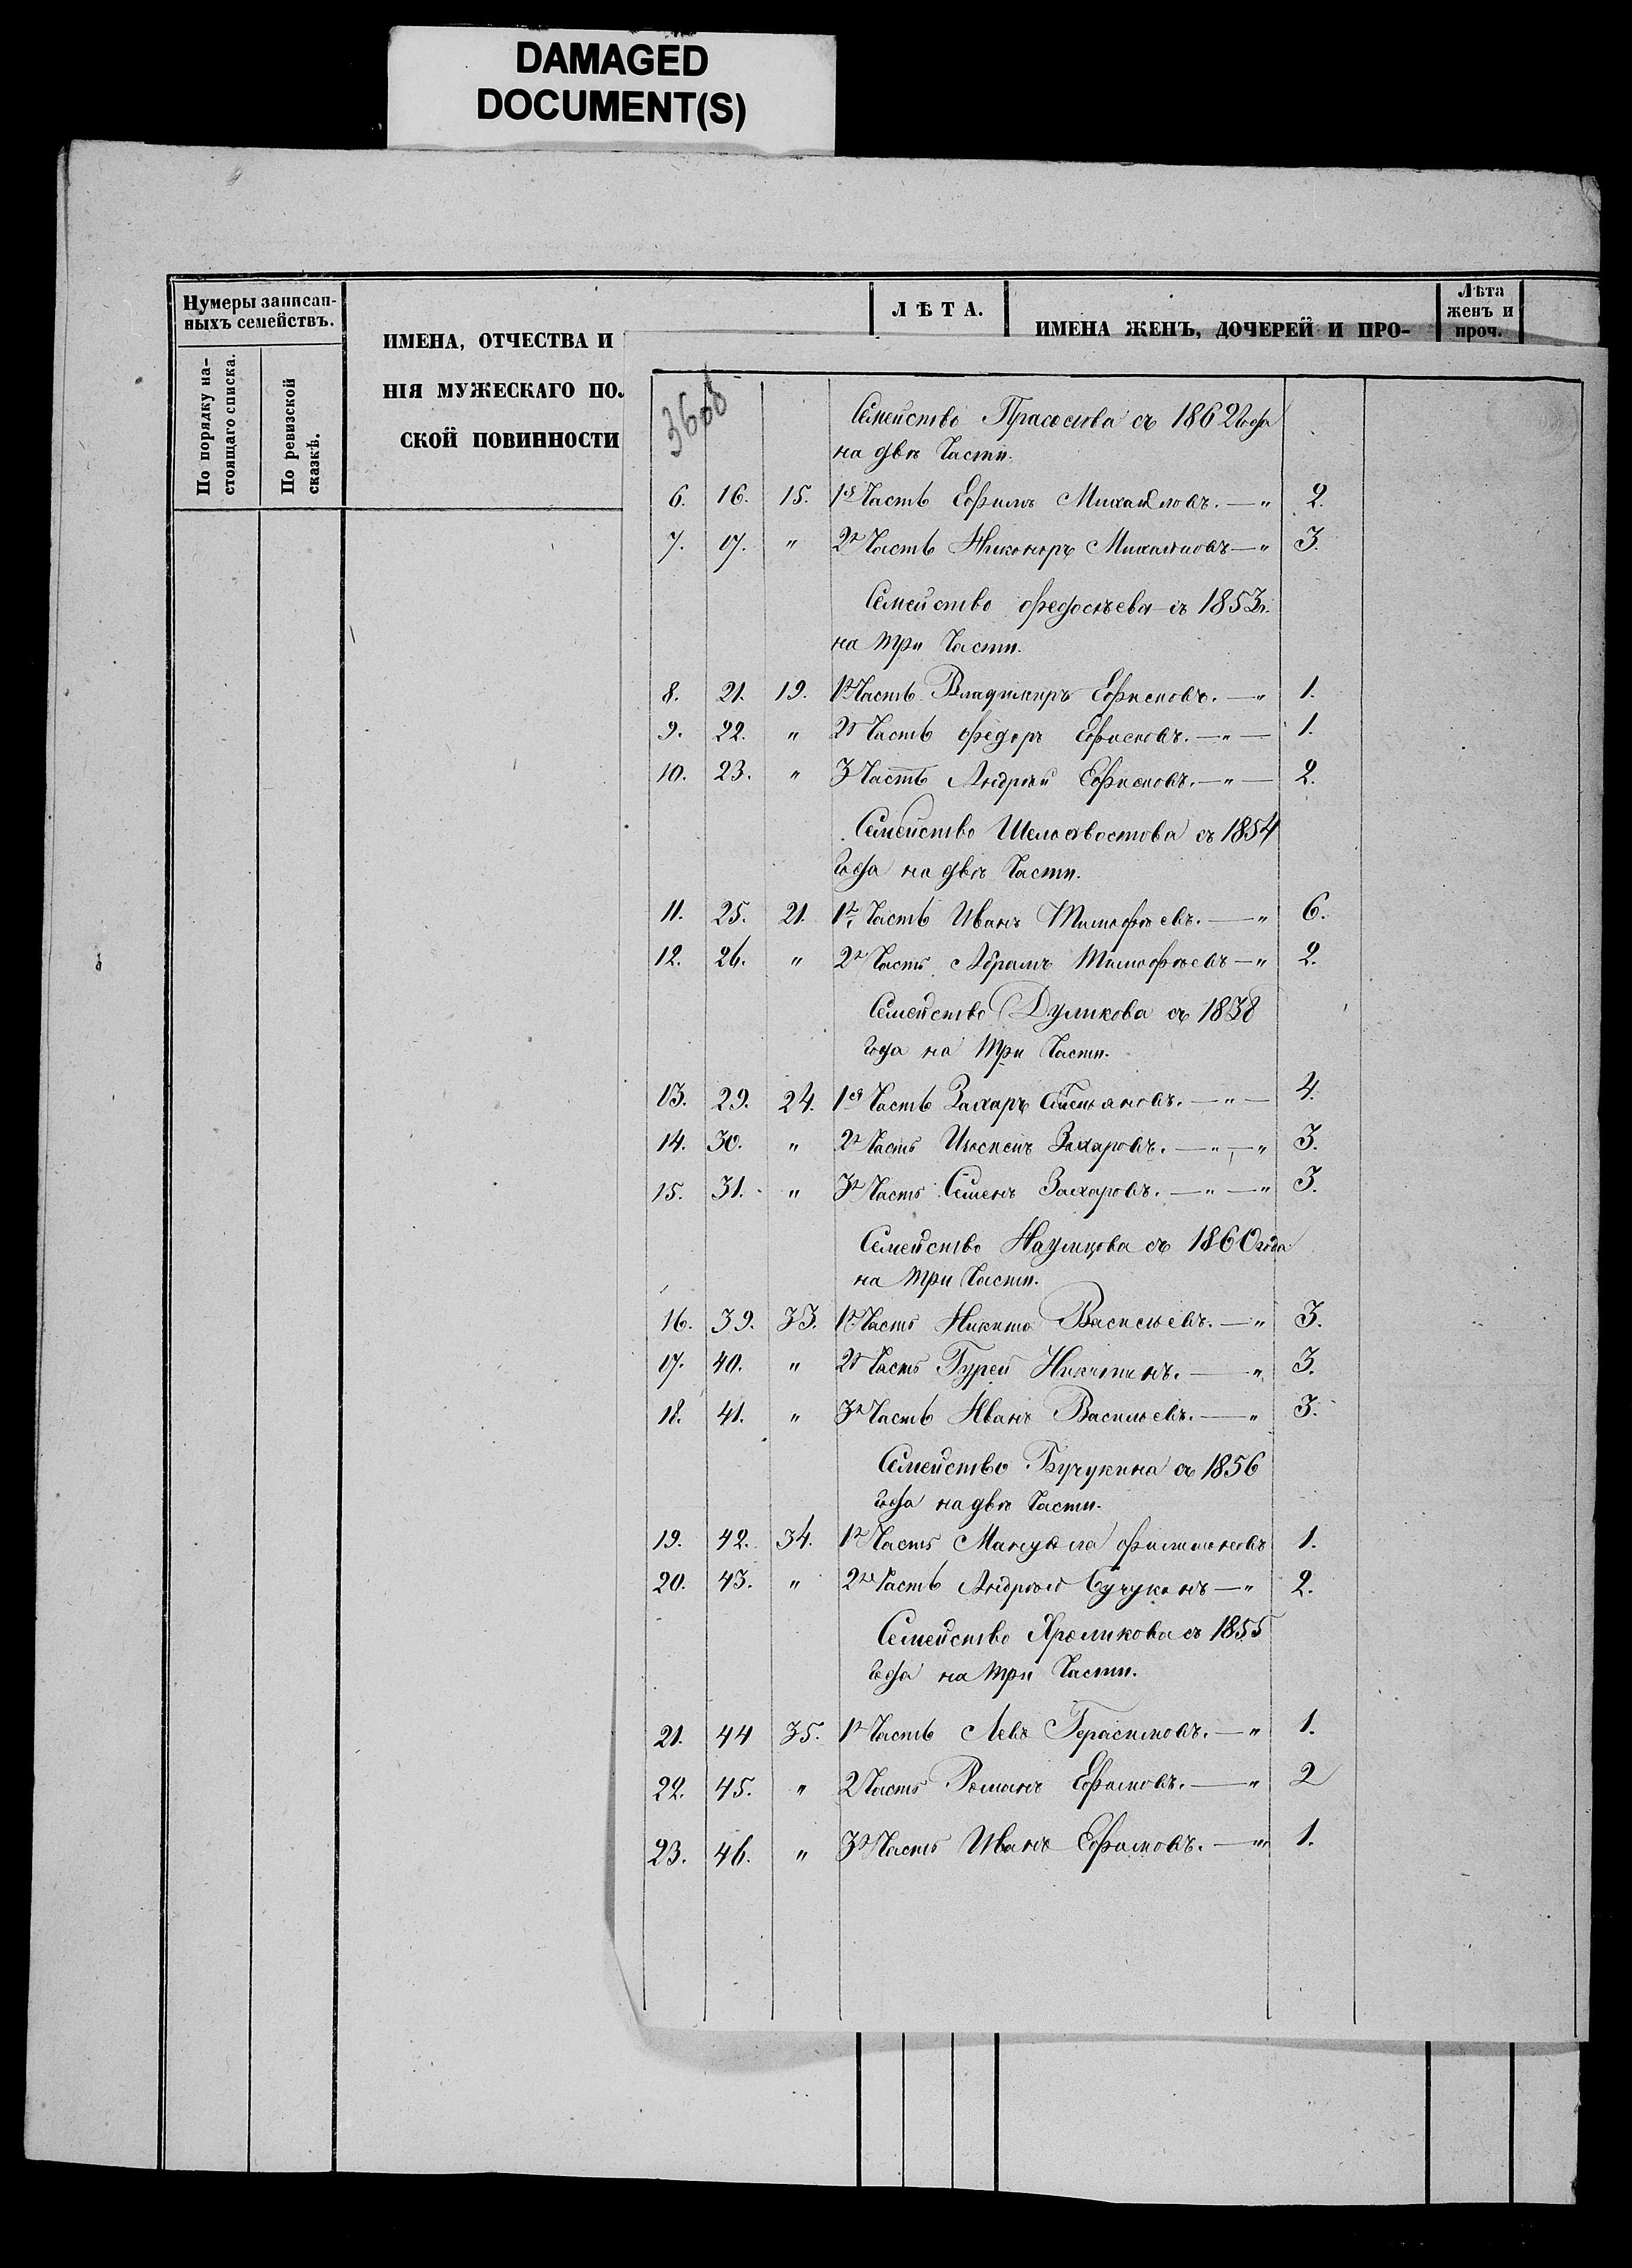 DAMAGED
DOCUMENT(S)
Нумеры записан-
ныхъ семействъ.
По порядку на-
стоящаго списка.
По ревизской
сказкѣ.
ИМЕНА, ОТЧЕСТВА И
НІЯ МУЖЕСКАГО ПО
СКОЙ ПОВИННОСТИ
ЛѢТА.
ИМЕНА ЖЕНЪ, ДОЧЕРЕЙ И ПРО-
Лѣта
женъ и
проч.
Семейство съ 1862 года
на двѣ Части.
6. 16. 15. 1я Часть Ефимъ Михайловъ. — " 2.
7. 17. " 2я Часть Никоноръ Михайловъ — " 3.
Семейство Федосѣева съ 1853 г.
на три Части.
8. 21. 19. 1я Часть Владимиръ — " 1.
9. 22. " 2я Часть Федоръ — " — 1.
10. 23. " 3 Часть Андрей — " — 2.
Семейство Шелохвостова съ 1854
года на двѣ Части.
11. 25. 21. 1я Часть Иванъ Тимофѣевъ. — " 6.
12. 26. " 2я Часть Абрамъ Тимофѣевъ — " 2.
Семейство Думикова съ 1838
года на три Части.
13. 29. 24. 1я Часть Захаръ Степановъ. — " — 4.
14. 30. " 2я Часть Захаровъ. — " — " 3.
15. 31. " 3я Часть Семенъ Захаровъ. — " — " 3.
Семейство Наумцова съ 1860 года
на три Части.
16. 39. 33. 1я Часть Никита Васильевъ. — " 3.
17. 40. " 2я Часть Гурей Никитинъ. — " 3.
18. 41. " 3я Часть Иванъ Васильевъ. — " 3.
Семейство Бучукина съ 1856
года на двѣ Части.
19. 42. 34. 1я Часть Мануйла Филимоновъ 1.
20. 43. " 2я Часть Андрей Бучукинъ — " 2.
Семейство съ 1855
года на три Части.
21. 44 35. 1я Часть Левъ Герасимовъ. — " 1.
22. 45. " 2 Часть Романъ Ефимовъ. — " 2
23. 46. " 3я Часть Иванъ Ефимовъ. — " 1.